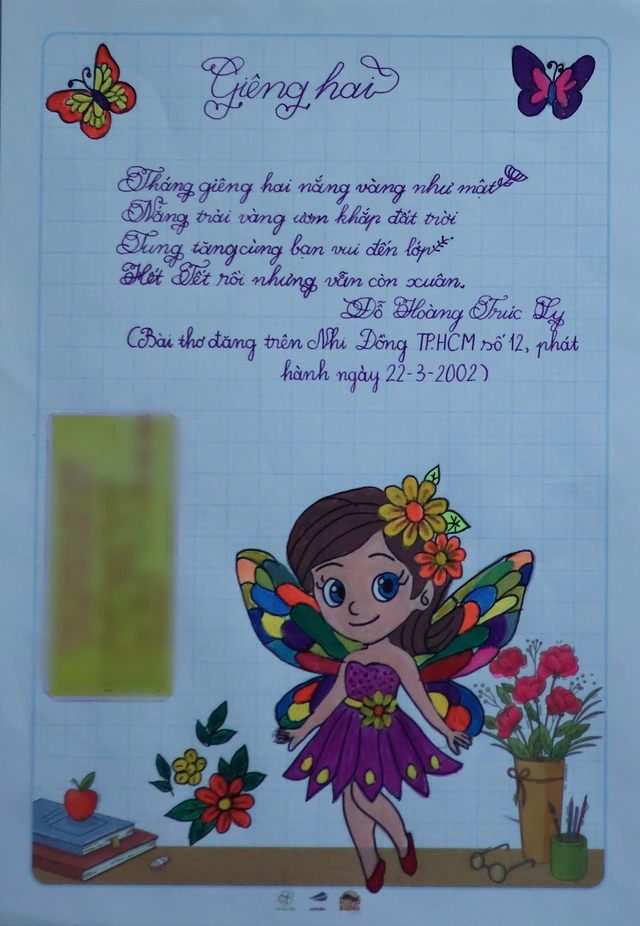 Giêng hai
Tháng giêng hai nắng vàng như mật
Nắng trải vàng ươm khắp đất trời
Tung tăng cùng bạn vui đến lớp
Hết Tết rồi nhưng vẫn còn xuân.
Đỗ Hoàng Trúc Ly
(Bài thơ đăng trên Nhi Đồng TP.HCM số 12, phát
hành ngày 22-3-2002)